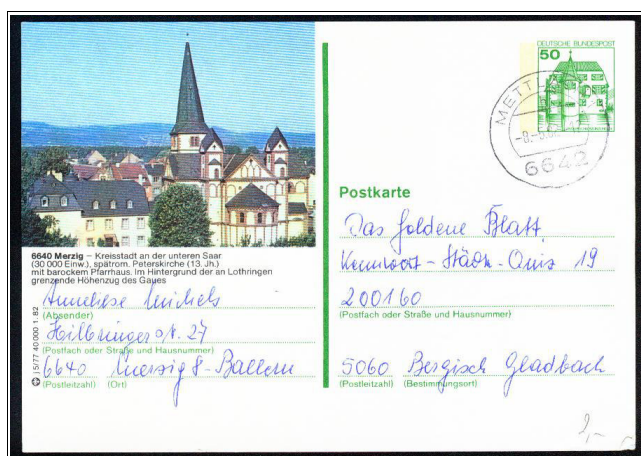 DEUTSCHE BUNDESPOST
50
METTLACH
6642
Postkarte
6640 Merzig – Kreisstadt an der unteren Saar
(30 000 Einw.), spätrom. Peterskirche (13. Jh.)
mit barockem Pfarrhaus. Im Hintergrund der an Lothringen
grenzende Höhenzug des Gaues
Anneliese Michels
(Absender)
Hilbringer str. 27
(Postfach oder Straße und Hausnummer)
6640 Merzig 8-Ballern
(Postleitzahl) (Ort)
j 5/77 40 000 1.82
Das goldene Blatt
Kennwort-Städte-Quiz 19
200160
(Postfach oder Straße und Hausnummer)
5060 Bergisch Gladbach
(Postleitzahl) (Bestimmungsort)
2,-